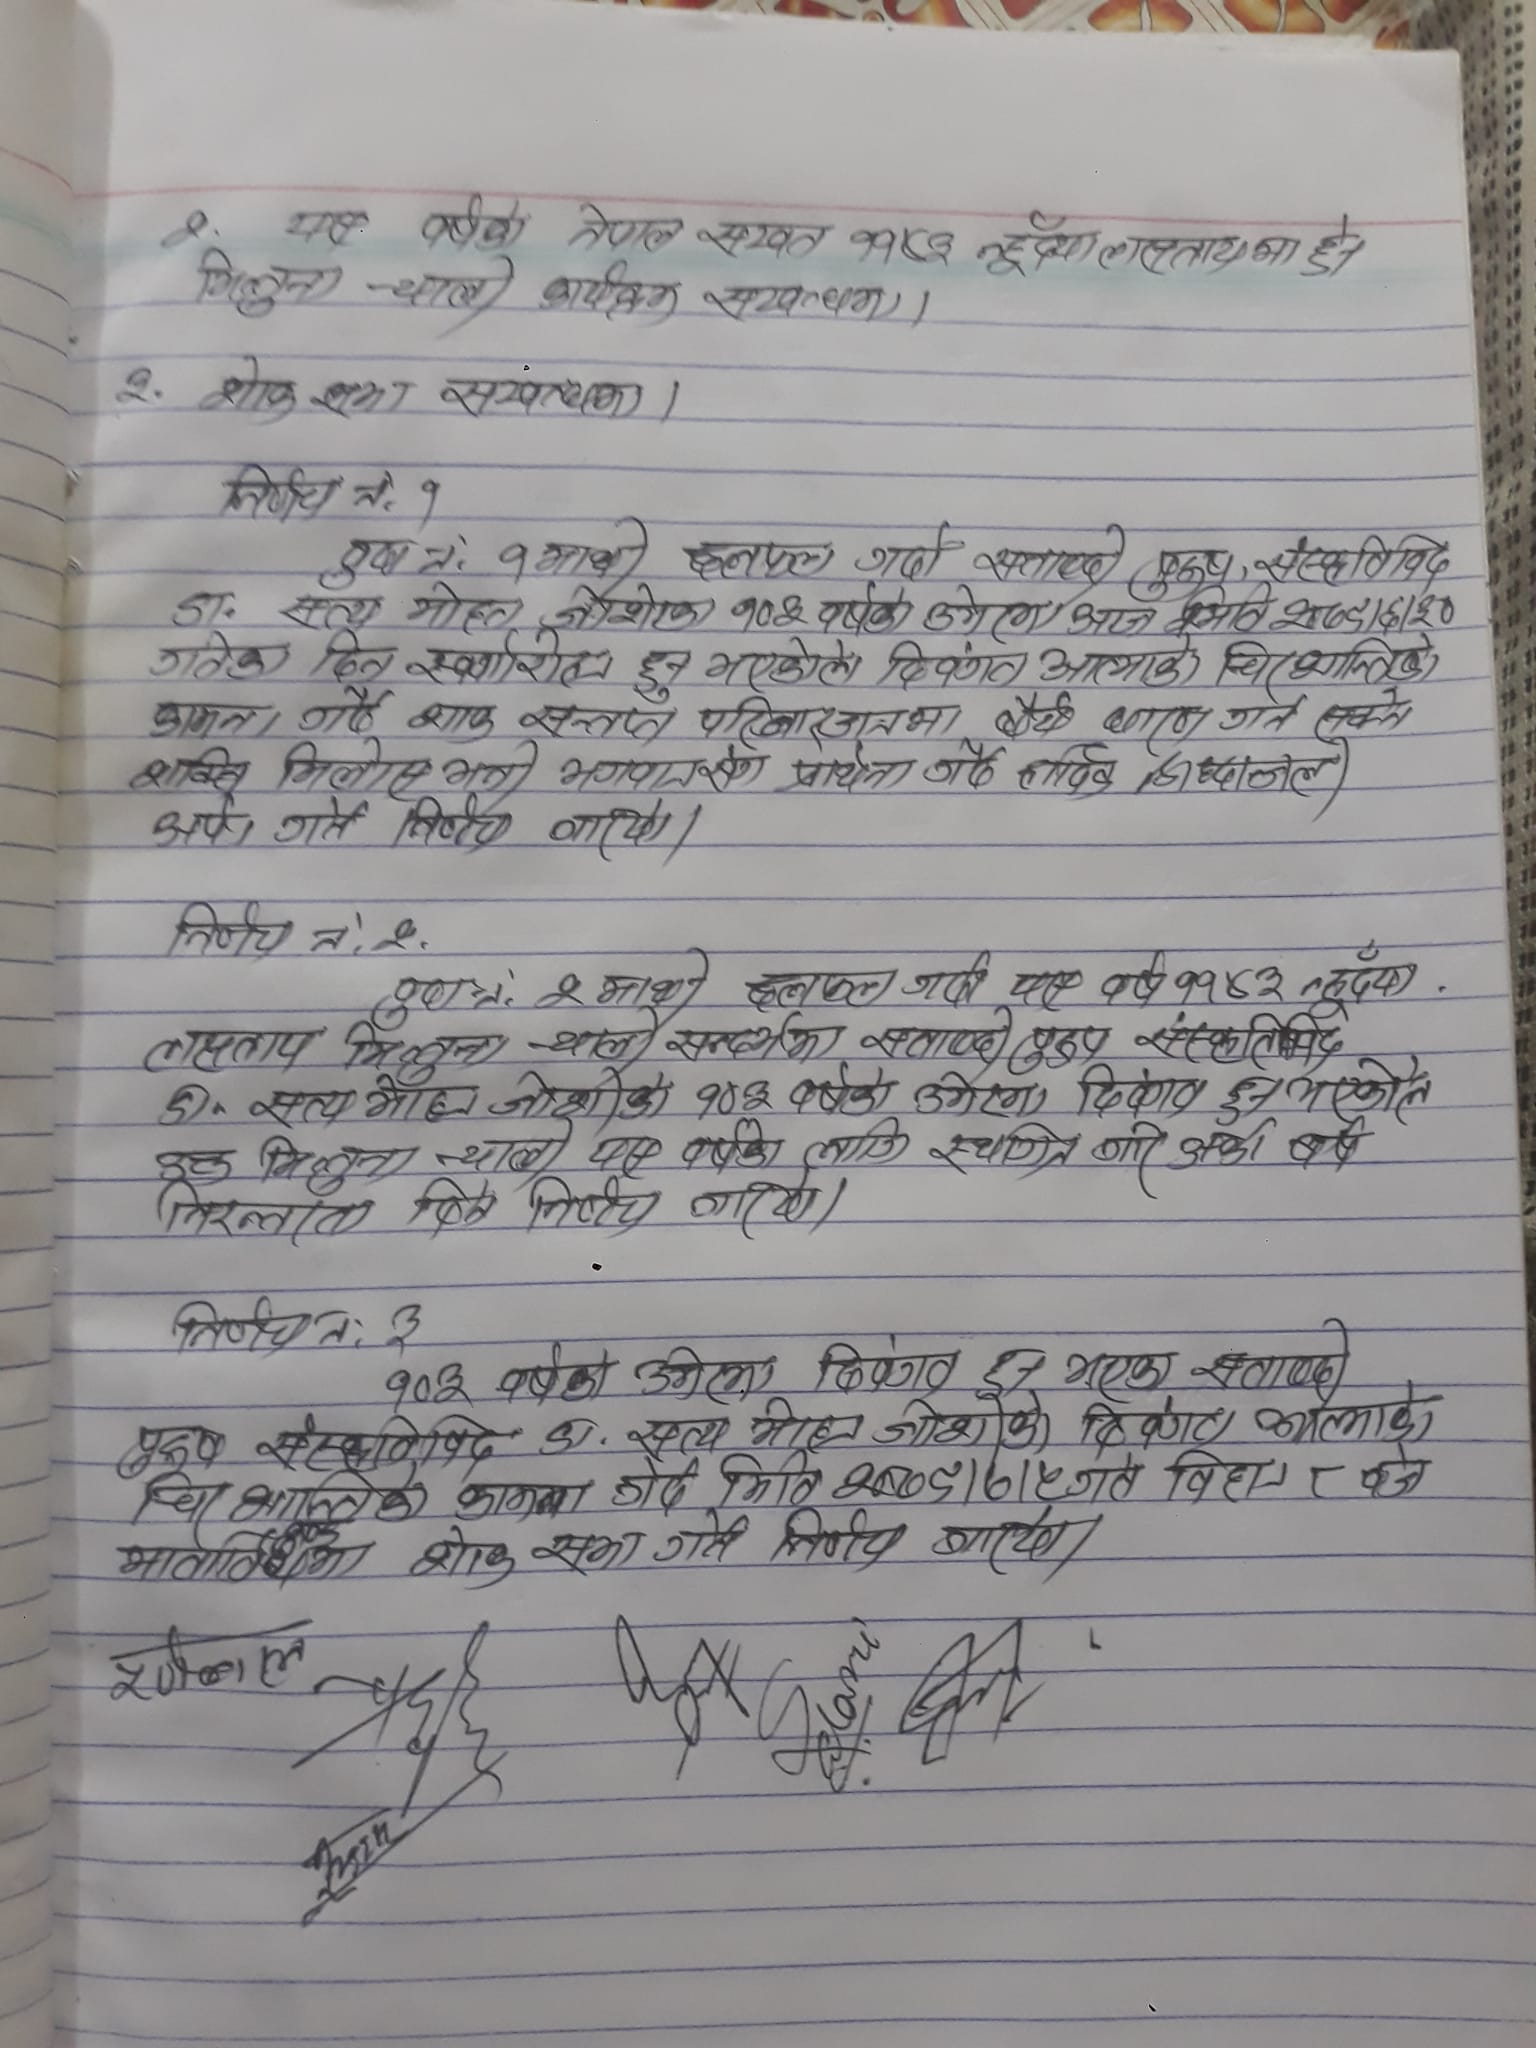 २. यस वर्षको नेपाल सम्वत ११४३ न्हूदँया लसतायमा हुने
भिन्तुना -याली कार्यक्रम सम्वन्धमा।
३. शोक सभा सम्वन्धमा।
निर्णय नं. १
प्रस्ताव नं. १ माथी छलफल गर्दा सताब्दी पुरुष, संस्कृतिविद
डा. सत्य मोहन जोशीको १०३ वर्षको उमेरमा आज मिति २०७९।६।३०
गतेका दिन स्वर्गारोहण हुनु भएकोले दिवंगत आत्माको चिरशान्तिको
कामना गर्दै शोक सन्तप्त परिवारजनमा धैर्य धारण गर्न सक्ने
शक्ति मिलोस भन्ने भगवानसंग प्रार्थना गर्दै हार्दिक श्रद्धाञ्जली
अर्पण गर्ने निर्णय गरियो।
निर्णय नं. २.
प्रस्ताव नं. २ माथी छलफल गर्दा यस वर्ष ११४३ न्हूदँया
लसताय भिन्तुना -याली सन्दर्भमा सताब्दी पुरुष संस्कृतिविद
डा. सत्य मोहन जोशीको १०३ वर्षको उमेरमा दिवंगत हुनु भएकोले
उक्त भिन्तुना -याली यस वर्षको लागि स्थगित गरि अर्को वर्ष
निरन्तरता दिने निर्णय गरियो।
निर्णय नं. ३
१०३ वर्षको उमेरमा दिवंगत हुनु भएका सताब्दी
पुरुष संस्कृतिविद डा. सत्य मोहन जोशीको दिवंगत आत्माको
चिर शान्तिको कामना गर्दै मिति २०७९।७।५ गते विहान ८ बजे
शोक सभा गर्ने निर्णय गरियो।